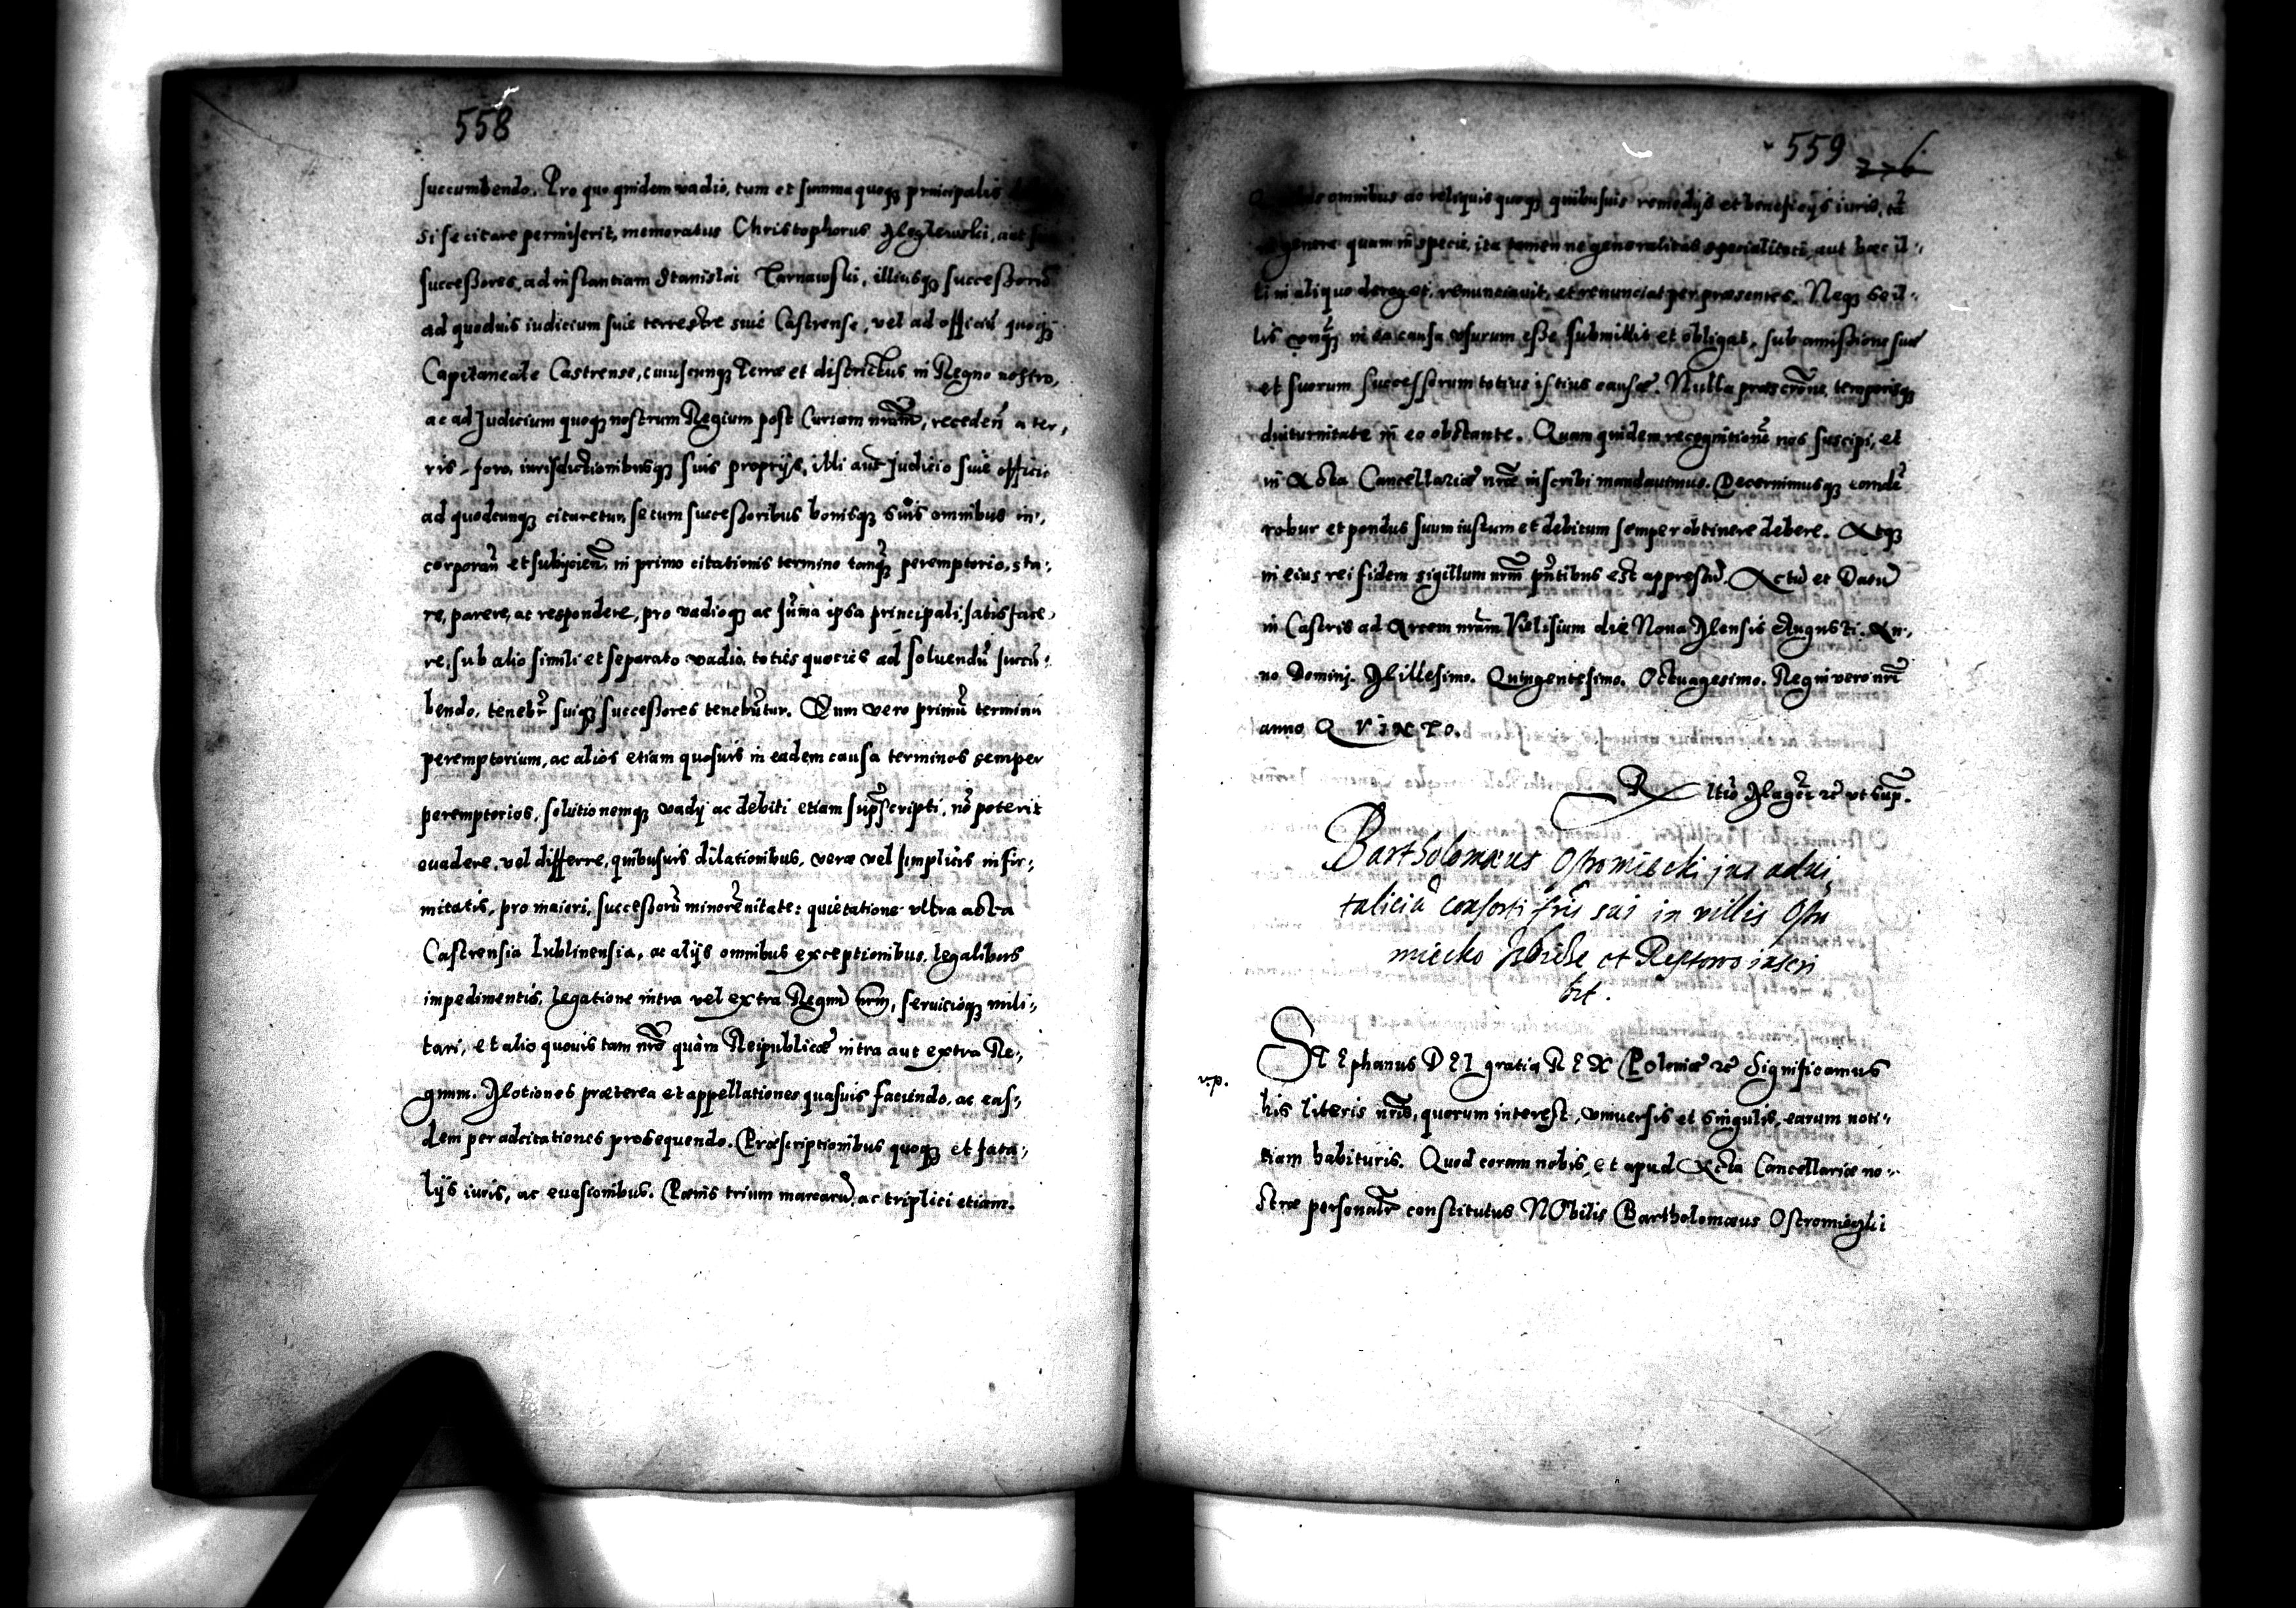 558
succumbendo. Pro quo quidem vadio, tum et summa quoq₃ principalis
si se citare permiserit, memoratus Christophorus Męglewski, aut
successores, ad instantiam Stanislai Tarnawski, illiusq₃ successorũ
ad quoduis iudicium siue terrestre siue Castrense, vel ad officiũ quoq₃
Capitaneale Castrense, cuiuscunq₃ Terræ et districtus in Regno nostro,
ac ad Judicium quoq₃ nostrum Regium post Curiam nram̃, receden̄ a ter,
ris, foro, iurisdictionibusq₃ suis proprijs, illi aut Judicio siue officio
ad quodcunq₃ citaretur, se cum successoribus bonisq₃ suis omnibus in,
corporan̄ et subijcien̄, in primo citationis termino tanq₃ peremptorio, sta,
re, parere, ac respondere, pro vadioq₃ ac sũma ipsa principali, satisface
re, sub alio simili et separato vadio, toties quoties ad soluendũ succũ,
bendo, tenebr̃ suiq₃ successores tenebũtur. Dum vero primũ terminũ
peremptorium, ac alios etiam quosuis in eadem causa terminos semper
peremptorios, solutionemq₃ vadij ac debiti etiam sup̃scripti, nõ poterit
euadere, vel differre, quibusuis dilationibus, veræ vel simplicis infir,
mitatis, pro maiori, successorũ minorẽnitate: quietatione vltra acta
Castrensia Lublinensia, ac alijs omnibus exceptionibus, legalibus
impedimentis, legatione intra vel extra Regnũ nr̃m, seruicioq₃ mili,
tari, et alio quouis tam nrõ quàm Reipublicæ intra aut extra Re,
gnum. Motiones præterea et appellationes quasuis faciendo, ac eas,
dem per adcitationes prosequendo. Præscriptionibus quoq₃ et fata,
lijs iuris, ac euasionibus. Pœnis trium marcarũ, ac triplici etiam.
559 276
omnibus ac reliquis quoq₃ quibusuis remedijs et beneficijs iuris, tã
genere quam in specie, ita tamen ne generalitas specialitati, aut hæc il,
li in aliquo deroget, renunciauit, et renunciat per præsentes. Neq₃ se il,
lis vnq̃₃ in ea causa vsurum esse submittit et obligat, sub amissione suæ
et suorum successorum totius istius causæ. Nulla præscr̃one, temporisq₃
diuturnitate in eo obstante. Quam quidem recognitionẽ nos suscipi, et
in Acta Cancellariæ nr̃æ inscribi mandauimus. Decernimusq₃ eandẽ
robur et pondus suum iustum et debitum semper obtinere debere. Atq₃
in eius rei fidem sigillum nrm̃ pñtibus est appressũ. Actũ et Datũ
in Castris ad Arcem nram̃ Vielisium die Nona Mensis Augusti. An,
no Dominj. Millesimo. Quingentesimo. Octuagesimo. Regni vero nrĩ
anno QVINTO.
Rltiõ Mageĩ rẽ vt sup̃.
Bartholomæus Ostromiecki jus adui
taliciũ consorti fris̃ sui in villis Ostro
miecko et Reptowo inscri
bit.
StEphanus DEI gratia REX Poloniæ rẽ Significamus
his literis nrĩs, quorum interest, vniuersis et singulis, earum noti,
tiam habituris. Quod coram nobis, et apud Acta Cancellariæ no,
stræ personalr̃ constitutus NObilis Bartholomæus Ostromięcki